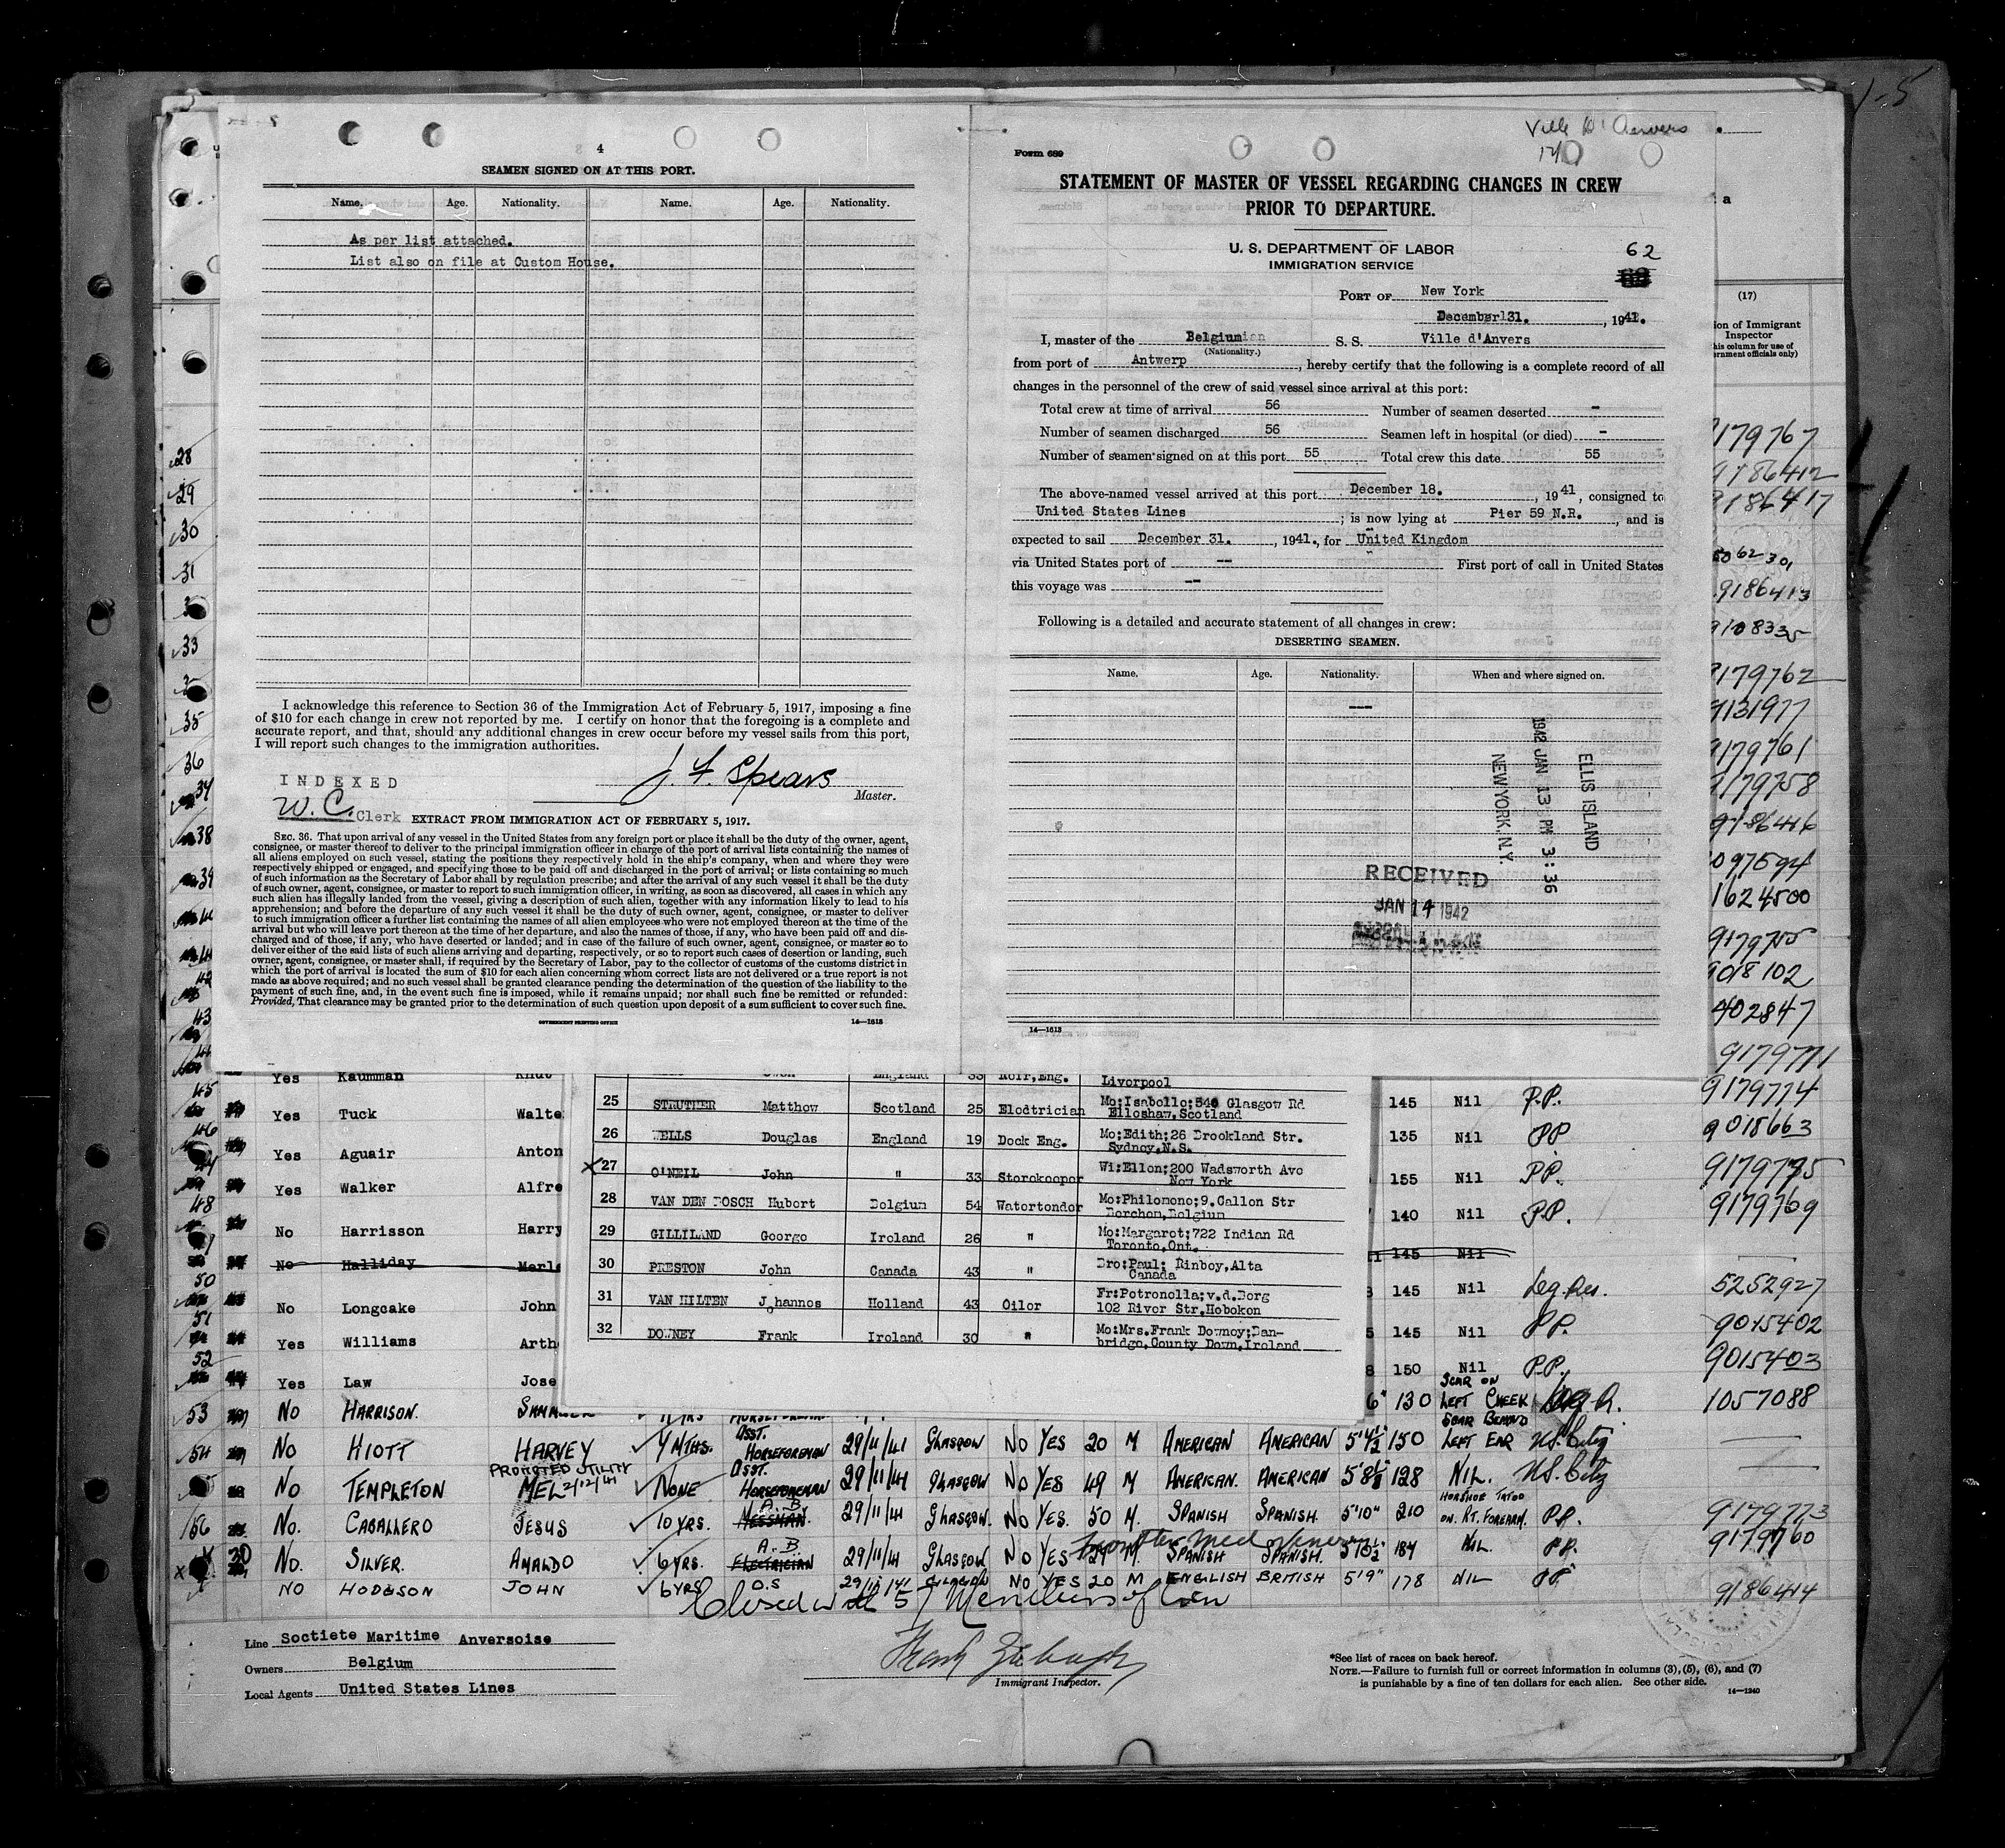 1-5
4
SEAMEN SIGNED ON AT THIS PORT.
Name. Age. Nationality. Name. Age. Nationality.
As per list attached.
List also on file at Custom House.
I acknowledge this reference to Section 36 of the Immigration Act of February 5, 1917, imposing a fine
of $10 for each change in crew not reported by me. I certify on honor that the foregoing is a complete and
accurate report, and that, should any additional changes in crew occur before my vessel sails from this port,
I will report such changes to the immigration authorities.
J. F. Spears
Master.
INDEXED
W.C. Clerk
EXTRACT FROM IMMIGRATION ACT OF FEBRUARY 5, 1917.
SEC. 36. That upon arrival of any vessel in the United States from any foreign port or place it shall be the duty of the owner, agent,
consignee, or master thereof to deliver to the principal immigration officer in charge of the port of arrival lists containing the names of
all aliens employed on such vessel, stating the positions they respectively hold in the ship's company, when and where they were
respectively shipped or engaged, and specifying those to be paid off and discharged in the port of arrival; or lists containing so much
of such information as the Secretary of Labor shall by regulation prescribe; and after the arrival of any such vessel it shall be the duty
of such owner, agent, consignee, or master to report to such immigration officer, in writing, as soon as discovered, all cases in which any
such alien has illegally landed from the vessel, giving a description of such alien, together with any information likely to lead to his
apprehension; and before the departure of any such vessel it shall be the duty of such owner, agent, consignee, or master to deliver
to such immigration officer a further list containing the names of all alien employees who were not employed thereon at the time of the
arrival but who will leave port thereon at the time of her departure, and also the names of those, if any, who have been paid off and dis-
charged and of those, if any, who have deserted or landed; and in case of the failure of such owner, agent, consignee, or master so to
deliver either of the said lists of such aliens arriving and departing, respectively, or so to report such cases of desertion or landing, such
owner, agent, consignee, or master, shall, if required by the Secretary of Labor, pay to the collector of customs of the customs district in
which the port of arrival is located the sum of $10 for each alien concerning whom correct lists are not delivered or a true report is not
made as above required; and no such vessel shall be granted clearance pending the determination of the question of the liability to the
payment of such fine, and, in the event such fine is imposed, while it remains unpaid; nor shall such fine be remitted or refunded:
Provided, That clearance may be granted prior to the determination of such question upon deposit of a sum sufficient to cover such fine.
GOVERNMENT PRINTING OFFICE 14—1613
Ville D'Anvers
Form 689
STATEMENT OF MASTER OF VESSEL REGARDING CHANGES IN CREW
PRIOR TO DEPARTURE.
U. S. DEPARTMENT OF LABOR
IMMIGRATION SERVICE
62
PORT OF New York
December 31. , 1941.
I, master of the Belgium S. S. Ville d'Anvers
(Nationality.)
from port of Antwerp , hereby certify that the following is a complete record of all
changes in the personnel of the crew of said vessel since arrival at this port:
Total crew at time of arrival 56 Number of seamen deserted -
Number of seamen discharged 56 Seamen left in hospital (or died) -
Number of seamen signed on at this port 55 Total crew this date 55
The above-named vessel arrived at this port December 18. , 1941, consigned to
United States Lines ; is now lying at Pier 59 N.R. , and is
expected to sail December 31. , 1941., for United Kingdom
via United States port of -- First port of call in United States
this voyage was --
Following is a detailed and accurate statement of all changes in crew:
DESERTING SEAMEN.
Name. Age. Nationality. When and where signed on.
---
1942 JAN 13 PM 3:36
ELLIS ISLAND
NEW YORK, N.Y.
RECEIVED
JAN 14 1942
14—1613
a
(17)
ion of Immigrant
Inspector
his column for use of
ernment officials only)
28 179767
29 9186412
9186417
30
31
9186413
33
179762
35 9131977
36 9179761
179758
38 9186416
39 097594
1624500
9179755
42 9018102
43 402847
9179771
45 Yes Kaumman Knut
Owen England 33 Rofr.Eng. Liverpool
9179774
Yes Tuck Walte 145 Nil P.P.
46 Yes Aguair Anton 135 Nil PP 9018663
Yes Walker Alfre 155 Nil P.P. 9179775
48 No Harrisson Harry 140 Nil P.P. 9179769
No Halliday Merl 145 Nil
50 No Longcake John 145 Nil Leg. Res. 5252927
51 Yes Williams Arth 145 Nil PP. 9015402
52 Yes Law Jose 150 Nil P.P. 9015403
25 STRUTHER Matthow Scotland 25 Elodtrician Mo:Isabollo;540 Glasgow Rd
Elloshaw,Scotland
26 WELLS Douglas England 19 Dock Eng. Mo:Edith;26 Brookland Str.
Sydney,N.S.
27 O'NEIL John " 33 Storokoopor Wi:Ellon;200 Wadsworth Avo
New York
28 VAN DEN BOSCH Hubort Bolgium 54 Watortondor Mo:Philomono;9.Callon Str
Borchom,Bolgium
29 GILLILAND Goorgo Iroland 26 " Mo:Margarot;722 Indian Rd
Toronto,Ont.
30 PRESTON John Canada 43 " Bro:Paul; Rinboy,Alta
Canada
31 VAN HILTEN Johannos Holland 43 Oilor Fr:Potronolla;v.d.Borg
102 Rivor Str.Hobokon
32 DOWNEY Frank Iroland 30 " Mo:Mrs.Frank Downoy;Ban-
bridgo,County Down,Iroland
53 No HARRISON. 6" 130 SCAR ON LEFT CHEEK 1057088
54 No HIOTT HARVEY 4 MTHS. ASST. HORSEFOREMAN 29/11/41 GLASGOW NO YES 20 M AMERICAN AMERICAN 5'4½ 150 SCAR BEHIND LEFT EAR US. Citz
No TEMPLETON MEL PROMOTED UTILITY 2/12/41 NONE ASST. HORSEFOREMAN 29/11/41 GLASGOW NO YES 49 M AMERICAN. AMERICAN 5'8½ 128 NIL. US. Citz
56 No. CABALLERO JESUS 10 YRS. A.B. MESSMAN. 29/11/41 GLASGOW. NO YES. 50 M. SPANISH SPANISH 5'10" 210 HORSHOE TATOO ON. RT. FOREARM. P.P. 9179773
30 No. SILVER. AMALDO 6 YRS. A.B. ELECTRICIAN 29/11/41 GLASGOW NO YES 29 M. SPANISH SPANISH. 184 NIL. PP. 9179760
NO HODGSON JOHN 6 YRS O.S 29/11/41 GLASGOW NO YES 20 M ENGLISH BRITISH 5'9" 178 NIL PP 9186414
Closed with 57 Members of Crew
Line Soctiete Maritime Anversoise
Owners Belgium
Local Agents United States Lines
Immigrant Inspector.
*See list of races on back hereof.
NOTE.—Failure to furnish full or correct information in columns (3), (5), (6), and (7)
is punishable by a fine of ten dollars for each alien. See other side.
14—1240